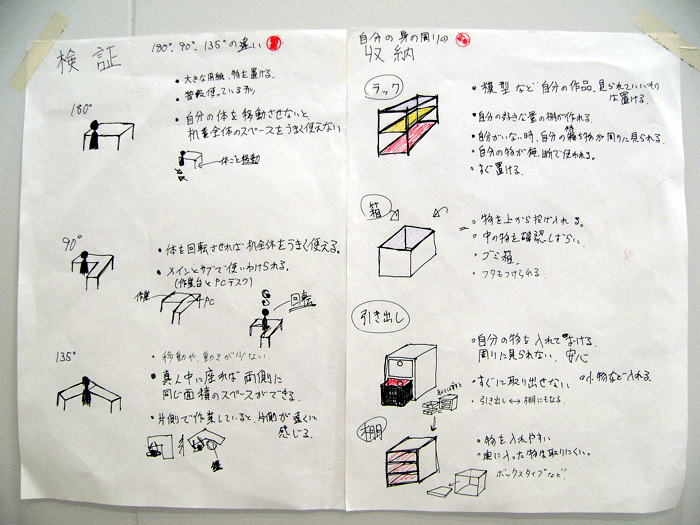 検証
180°、90°、135°の違い
180°
• 大きな用紙、物を置ける。
• 普段使っている形。
• 自分の体を移動させないと、
机全体のスペースをうまく使えない
体ごと移動
90°
• 体を回転させれば机全体をうまく使える。
• メインとサブで使いわけられる。
(作業台とPCデスク)
作業
PC
回転
135°
• 移動や、動きが少ない。
• 真ん中に座れば両側に
同じ面積のスペースができる。
• 片側で作業していると、片側が遠くに
感じる。
自分の身の周りの
収納
ラック
• 模型など自分の作品、見られていいもの
は置ける。
• 自分の好きな量の棚が作れる。
• 自分がいない時、自分の持ち物が周りに見られる。
• 自分の物が無断で使われる。
• すぐ置ける。
箱
• 物を上から投げ入れる。
• 中の物を確認しずらい。
• ゴミ箱。
• フタもつけられる。
引き出し
• 自分の物を入れておける。
周りに見られない、安心
• すぐに取り出せない
• 小物など入れる
• 引き出し↔棚にもなる
棚
• 物を入れやすい
• 奥に入った物は取りにくい。
ボックスタイプなど!